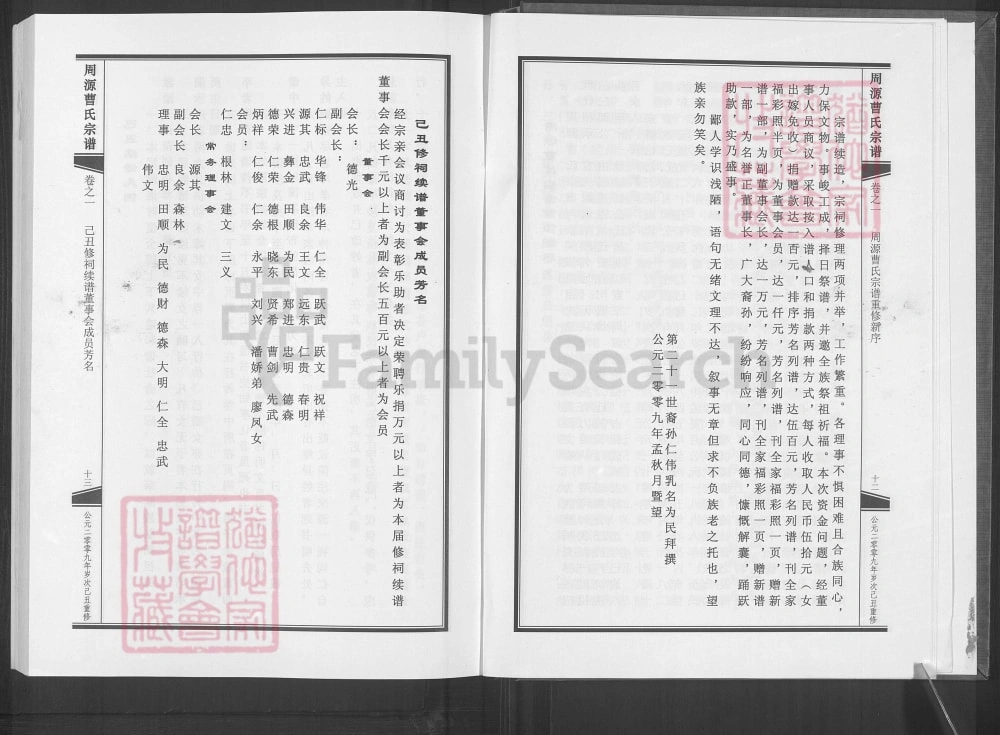 周源曹氏宗谱
卷之一
周源曹氏宗谱重修新序
十二
公元二零零九年岁次己丑重修
宗谱续造，宗祠修理两项并举，工作繁重。各理事不惧困难且合族同心，
力保文物。事峻工成，择日祭谱，并邀全族祭祖祈福。本次资金问题，经董
事人员商议，采取按入谱人口和捐款两种方式，每人收取人民币伍拾元（女
出嫁免收）捐赠款达一百元，排序芳名列谱，达伍百元，芳名列谱，刊全家
福彩照半页，为董事会员，达一仟元，芳名列谱，刊全家福彩照一页，赠新
谱一部，为副董事会长，达一万元，芳名列谱，刊全家福彩照一页，赠新谱
一部，为名誉正董事长，广大裔孙，纷纷响应，同心同德，慷慨解囊，踊跃
助款，实乃盛事。
鄙人学识浅陋，语句无绪文理不达，叙事无章但求不负族老之托也，望
族亲勿笑矣。
第二十一世裔孙仁伟乳名为民拜撰
公元二零零九年孟秋月暨望
己丑修祠续谱董事会成员芳名
经宗亲会议商讨为表彰乐助者决定荣聘乐捐万元以上者为本届修祠续谱
董事会会长千元以上者为副会长五百元以上者为会员
董事会
会长：德光
副会长：
仁标 华锋 伟华 仁全 跃武 跃文 祝祥
源其 忠武 良余 王文 远东 仁贵 春明
兴进 彝金 田顺 为民 郑进 忠明 德森
德荣 仁荣 德根 晓东 贤希 曹剑 先武
炳祥 仁俊 仁余 永平 刘兴 潘娇弟 廖凤女
会员：
仁忠 根林 建文 三义
常务理事会
会长 源其
副会长 良余 森林
理事 忠明 田顺 为民 德财 德森 大明 仁全 忠武
伟文
周源曹氏宗谱
卷之一
己丑修祠续谱董事会成员芳名
十三
公元二零零九年岁次己丑重修
FamilySearch